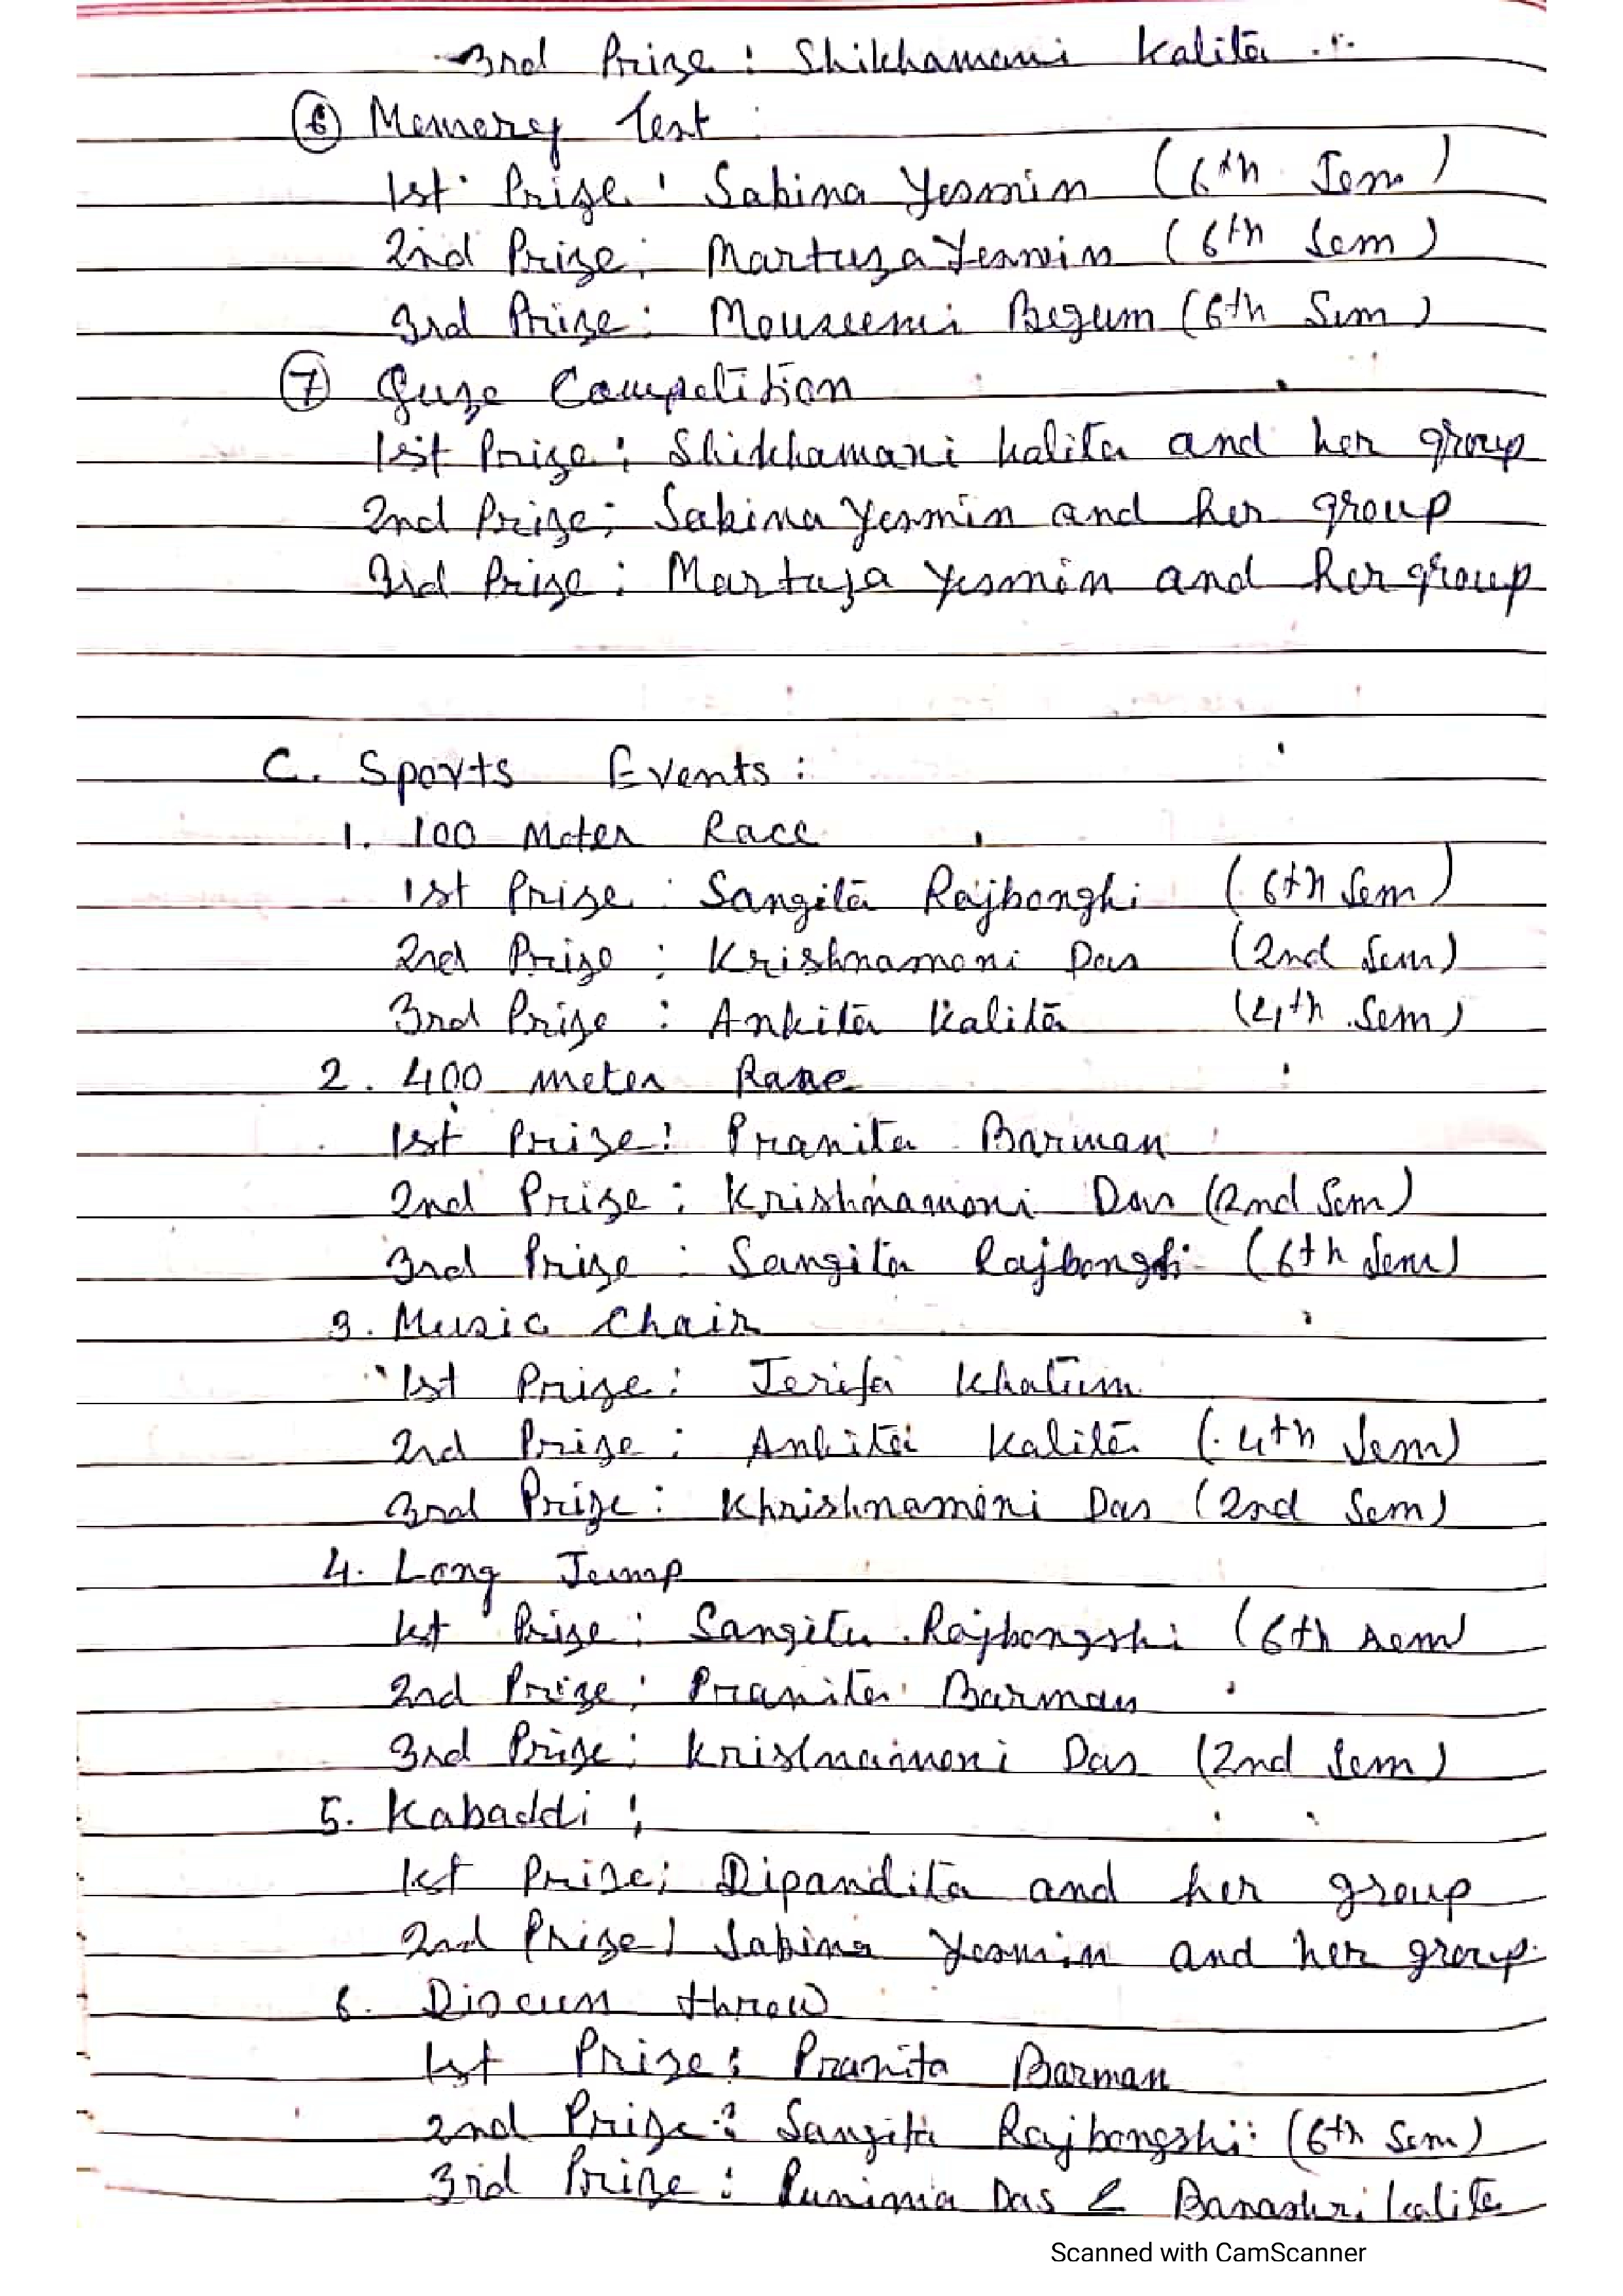 3rd Prize : Shikhamani Kalita
⑥ Memory Test :
1st Prize : Sabina Yesmin (6th Sem)
2nd Prize : Martuza Yesmin (6th Sem)
3rd Prize : Mouseemi Begum (6th Sem)
⑦ Quze Competition
1st Prize : Shikhamani Kalita and her group
2nd Prize : Sabina Yesmin and her group
3rd Prize : Martuja Yesmin and her group
C. Sports Events :
1. 100 Meter Race
1st Prize : Sangita Rajbonghi (6th Sem)
2nd Prize : Krishnamoni Das (2nd Sem)
3rd Prize : Ankita Kalita (4th Sem)
2. 400 meter Rane
1st Prize : Pranita Barman
2nd Prize : Krishnamoni Das (2nd Sem)
3rd Prize : Sangita Rajbongshi (6th Sem)
3. Music Chair
1st Prize : Jerifa Khatun
2nd Prize : Ankita Kalita (4th Sem)
3rd Prize : Khrishnamoni Das (2nd Sem)
4. Long Jump
1st Prize : Sangita Rajbongshi (6th sem)
2nd Prize : Pranita Barman
3rd Prize : Krishnamoni Das (2nd Sem)
5. Kabaddi :
1st Prize : Dipandita and her group
2nd Prize : Sabina Yesmin and her group
6. Discuss throw
1st Prize : Pranita Barman
2nd Prize : Sangita Rajbongshi (6th Sem)
3rd Prize : Punima Das & Banashri Kalita
Scanned with CamScanner